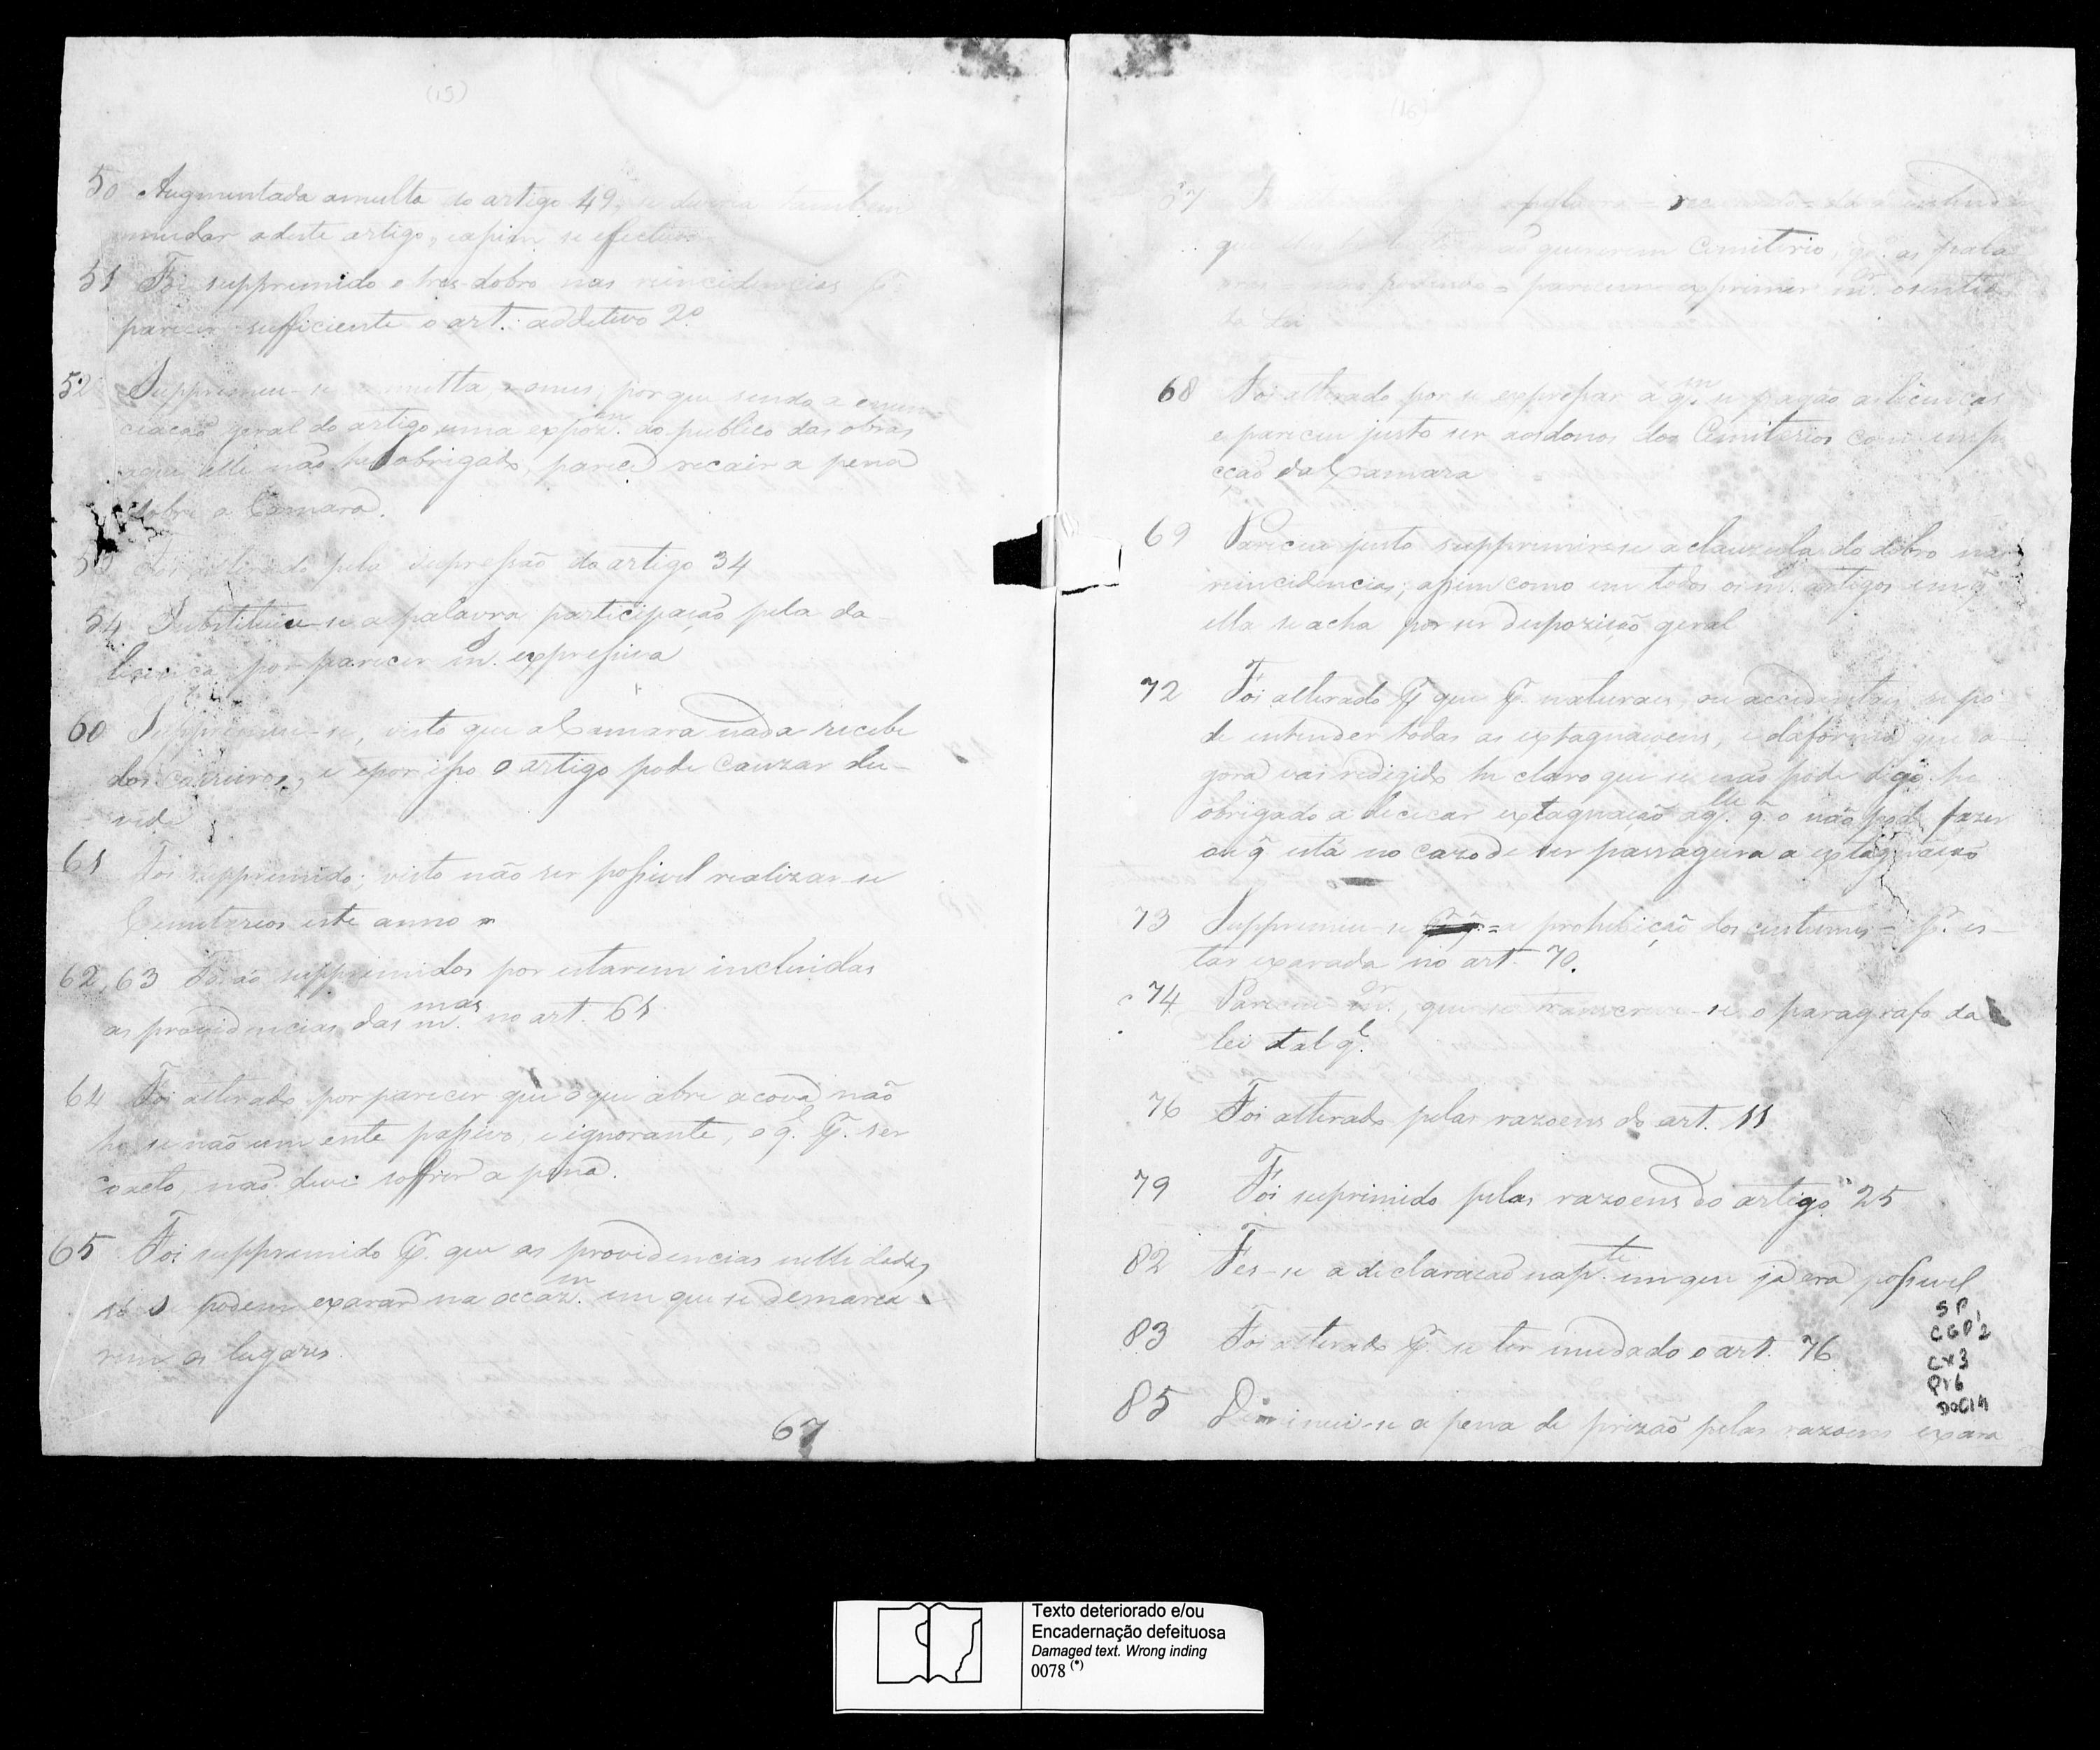 (15)
50 Augmentada a multa do artigo 49, se devia tambem
mudar a deste artigo, e assim se efectuou
51 Foi supprimido o tres-dobro nas reincidencias Pr.
parecer sufficiente o art. additivo 2º
52 Supprimiu-se a multa, porque sendo a enun-
ciacaõ geral do artigo uma expozm. ao publico das obras
aque elle não he obrigado, parece recair a pena
sobre a Camara.
53 Foi alterado pela supressão do artigo 34
54 Substituiu-se a palavra participação pela da
licença por parecer mr. expressiva
60 Supprimiu-se, visto que a Camara nada recebe
dos carreiros, e e por isso o artigo pode cauzar du-
vida
61 Foi supprimido; visto não ser possivel realizar-se
Cemiterios este anno
62, 63 Forão supprimidos por estarem incluidas
as providencias das mmas. no art. 61
64 Foi alterado por parecer que o que abre a cova não
he se não um ente passivo, e ignorante, e q. Pr. ser
coacto, não deve soffrer a pena.
65 Foi supprimido Pr. que as providencias nelle dadas,
só se podem exarar na occazm. em que se demarca-
rem os lugares.
67
(16)
67
que não quererem Cemiterio, pr. as pala
vras = não podendo = parecem exprimir mr. o sentido
da Lei
68 Foi alterado por se expressar a qm. se pagão as licenças
e pareceu justo ser aos donos dos Cemiterios com inspe
cção da Camara
69 Pareceu justo supprimir-se a clauzula do dobro nas
reincidencias, assim como em todos os artigos em q
ella se acha por ser dispozição geral
72 Foi alterado Pr. que Pr. naturaes, ou accidentaes se po
de entender todas as extagnaçoens, e da forma que a-
gora vai redigido he claro que se não pode digo he
obrigado a decicar extagnação aqlle. q. o não pode fazer
ou q está no cazo de ser passageira a extagnação
73 Supprimiu-se = a prohibição dos custumes = Pr. es-
tar exarada no art. 70.
74 Pareceu mr., que se transcreva-se o paragrafo da
lei tal ql.
76 Foi alterado pelas razoens do art. 11
79 Foi suprimido pelas razoens do artigo 25
82 Fes-se a declaracaõ na pte. em que já era possivel
83 Foi alterado Pr. se ter mudado o art. 76
85 Diminuiu-se a pena de prizão pelas razoens exara
SP
CGP 2
CX3
P16
DOC14
Texto deteriorado e/ou
Encadernação defeituosa
Damaged text. Wrong inding
0078 (*)